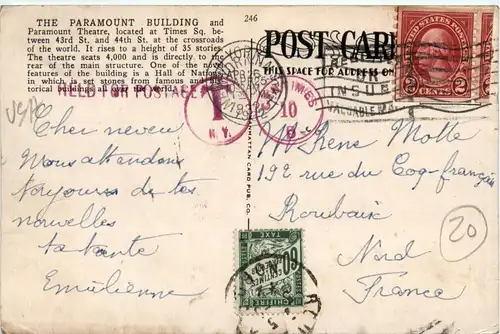 THE PARAMOUNT BUILDING and
Paramount Theatre, located at Times Sq. be-
tween 43rd St. and 44th St. at the crossroads
of the world. It rises to a height of 35 stories.
The theatre seats 4,000 and is directly to the
rear of the main structure. One of the novel
features of the building is a Hall of Nations
in which is set stones from famous and
torical buildings all over the world.
246
POST CARD
THIS SPACE FOR ADDRESS ON
UNITED STATES POSTAGE
2 CENTS 2
INSURE
VALUABLE
HELD FOR POSTAGE
T
N.Y.
CENTIMES
10
MANHATTAN CARD PUB. CO.
USA
Cher neveu
Nous attendons
toujours de tes
nouvelles
ta tante
Emilienne
Mr Rene Motte
192 rue du Coq français
Roubaix
Nord
France
20
60
CENTIMES
A PERCEVOIR
CHIFFRE
TAXE